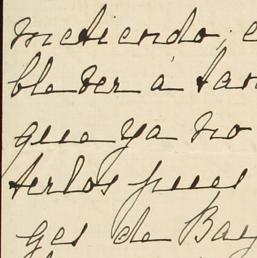 metiendo, e
ble ver á tan
que ya no
terlos pues
ges de Bay